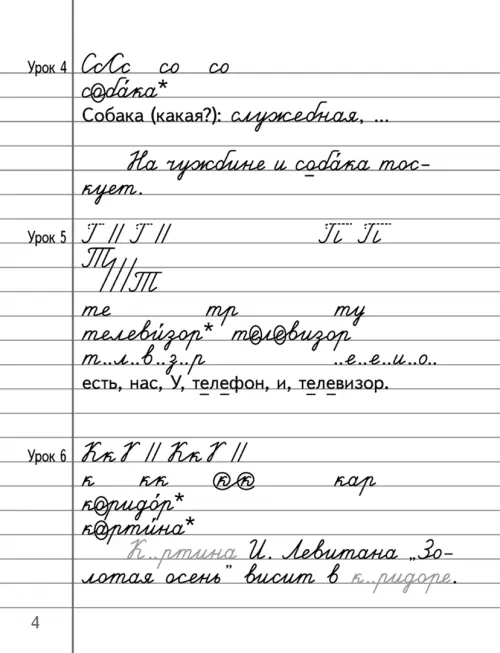 Урок 4 СсСс со со
собáка*
Собака (какая?): служебная, ...
На чужбине и собáка тос-
кует.
Урок 5 Г // Г // Гг Гг
Т///Т
те тр ту
телеви́зор* телевизор
т..л..в..з..р ..е..е..и..о..
есть, нас, У, телефон, и, телевизор.
Урок 6 КкК // КкК //
к кк кк кар
коридóр*
карти́на*
К..ртина И. Левитана „Зо-
лотая осень” висит в к..ридоре.
4